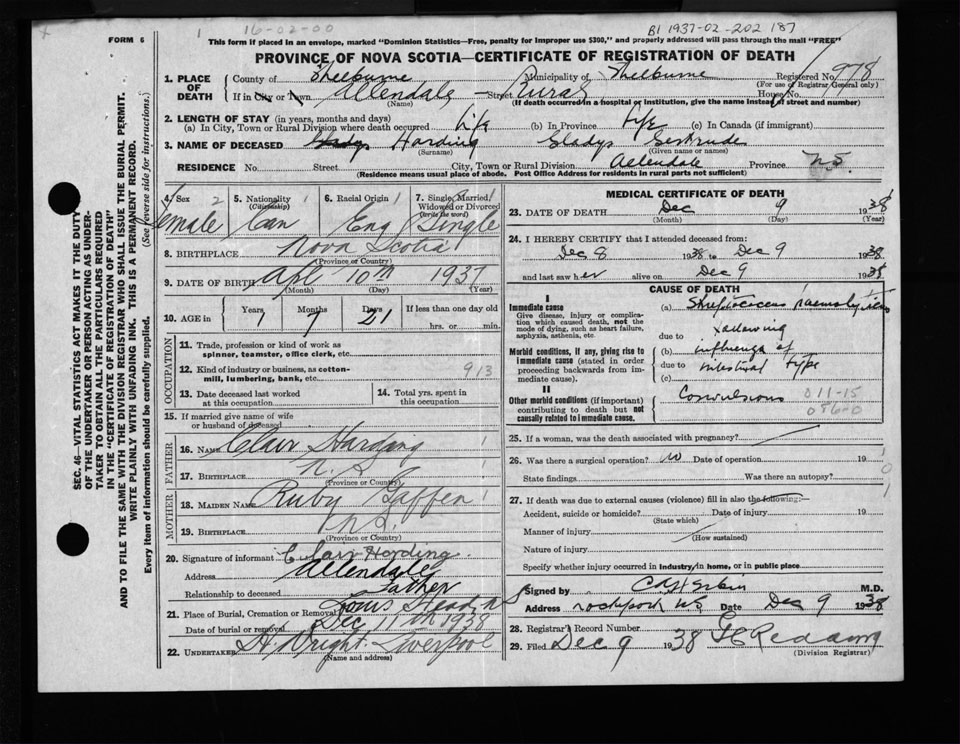 16-02-00
B1 1937-02-202 187
FORM 6
This form if placed in an envelope, marked "Dominion Statistics—Free, penalty for improper use $300," and properly addressed will pass through the mail "FREE"
PROVINCE OF NOVA SCOTIA—CERTIFICATE OF REGISTRATION OF DEATH
SEC. 46—VITAL STATISTICS ACT MAKES IT THE DUTY
OF THE UNDERTAKER OR PERSON ACTING AS UNDER-
TAKER TO OBTAIN ALL THE PARTICULARS REQUIRED
IN THE "CERTIFICATE OF REGISTRATION OF DEATH"
AND TO FILE THE SAME WITH THE DIVISION REGISTRAR WHO SHALL ISSUE THE BURIAL PERMIT.
WRITE PLAINLY WITH UNFADING INK. THIS IS A PERMANENT RECORD.
Every item of information should be carefully supplied. (See reverse side for instructions.)
1. PLACE OF DEATH County of Shelburne Municipality of Shelburne Registered No. 978
(For use of Registrar General only)
If in City or Town Allendale Street Rural House No.
(Name) (If death occurred in a hospital or institution, give the name instead of street and number)
2. LENGTH OF STAY (in years, months and days)
(a) In City, Town or Rural Division where death occurred Life (b) In Province Life (c) In Canada (if immigrant)
3. NAME OF DECEASED Gladys Harding Gladys Gertrude
(Surname) (Given name or names)
RESIDENCE No. Street City, Town or Rural Division Allendale Province N.S.
(Residence means usual place of abode. Post Office Address for residents in rural parts not sufficient)
4. Sex 2 5. Nationality 1 6. Racial Origin 1 7. Single, Married, 1
(Citizenship) Widowed or Divorced
(Write the word)
Female Can Eng Single
8. BIRTHPLACE Nova Scotia
(Province or Country)
9. DATE OF BIRTH Apl 10th 1937
(Month) (Day) (Year)
10. AGE in Years Months Days If less than one day old
1 7 21 hrs. or min.
OCCUPATION
11. Trade, profession or kind of work as
spinner, teamster, office clerk, etc.
12. Kind of industry or business, as cotton-
mill, lumbering, bank, etc. 913
13. Date deceased last worked
at this occupation
14. Total yrs. spent in
this occupation
15. If married give name of wife
or husband of deceased
FATHER
16. NAME Clair Harding 1
17. BIRTHPLACE N.S.
(Province or Country)
MOTHER
18. MAIDEN NAME Ruby Gaffen 1
19. BIRTHPLACE N.S.
(Province or Country)
20. Signature of informant Clair Harding
Address Allendale
Relationship to deceased Father
21. Place of Burial, Cremation or Removal
Date of burial or removal Dec 11th 1938
22. UNDERTAKER H. Wright Liverpool
(Name and address)
MEDICAL CERTIFICATE OF DEATH
23. DATE OF DEATH Dec 9 1938
(Month) (Day) (Year)
24. I HEREBY CERTIFY that I attended deceased from:
Dec 8 1938 to Dec 9 1938
and last saw her alive on Dec 9 1938
CAUSE OF DEATH
I
Immediate cause (a) Streptococcus haemolyticus
Give disease, injury or complica-
tion which caused death, not the
mode of dying, such as heart failure,
asphyxia, asthenia, etc.
due to following
Morbid conditions, if any, giving rise to
immediate cause (stated in order
proceeding backwards from im-
mediate cause).
(b) influenza of
due to intestinal type
(c)
II
Other morbid conditions (if important)
contributing to death but not
causally related to immediate cause.
Convulsions 011-15
086-0
25. If a woman, was the death associated with pregnancy?
26. Was there a surgical operation? no Date of operation 19
State findings Was there an autopsy?
27. If death was due to external causes (violence) fill in also the following:
Accident, suicide or homicide? Date of injury 19
(State which)
Manner of injury
(How sustained)
Nature of injury
Specify whether injury occurred in industry, in home, or in public place
Signed by M.D.
Address Lockeport NS Date Dec 9 1938
28. Registrar's Record Number
29. Filed Dec 9 1938
(Division Registrar)